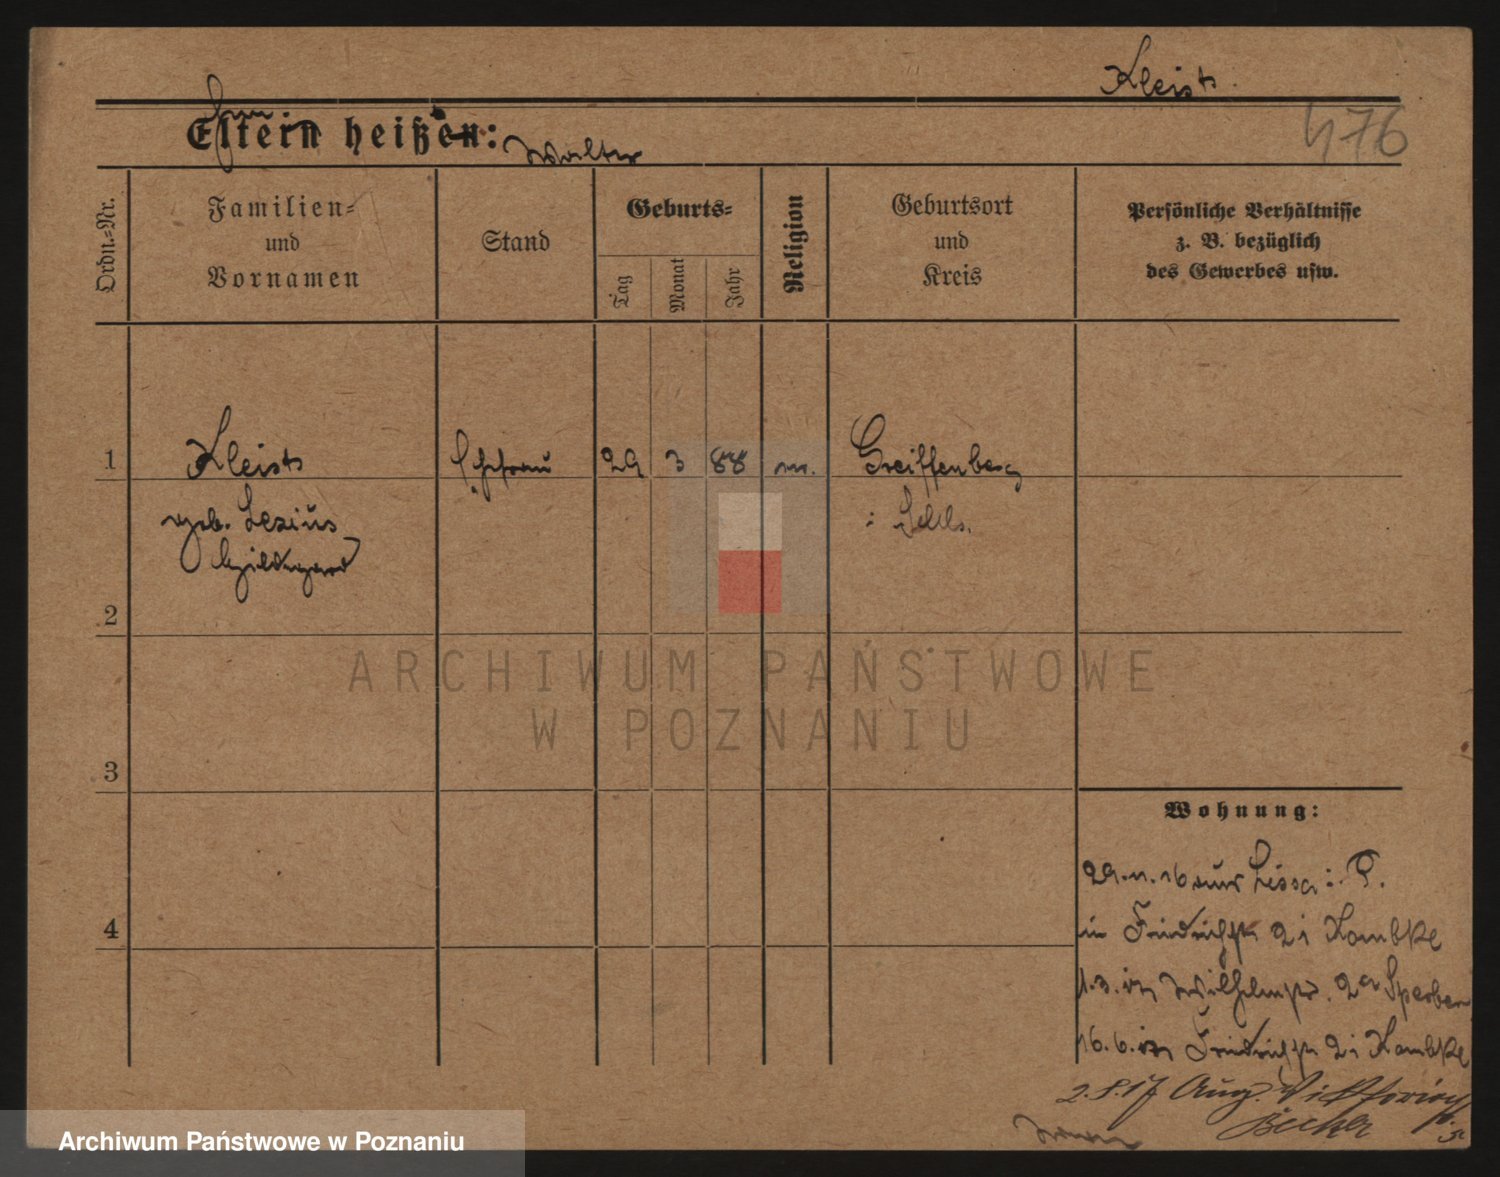 Kleist.
476
Eltern heißen:
Walter
Ordn.-Nr.
Familien-
und
Vornamen
Stand
Geburts-
Tag
Monat
Jahr
Religion
Geburtsort
und
Kreis
Persönliche Verhältnisse
z. B. bezüglich
des Gewerbes usw.
1
Kleist
Ehefrau
29
3
88
Greiffenberg
geb. Lezius
i. Schls.
Hildegard
2
3
4
Wohnung:
29.11.16 aus Lissa i. P.
in Friedrichstr 21 Kombke
1.3.17 Wilhelmstr. 2a Sperber
16.6.17 Friedrichstr 21 Kombke
2.8.17 Aug. Viktoriastr
Becker
ARCHIWUM PAŃSTWOWE
W POZNANIU
Archiwum Państwowe w Poznaniu